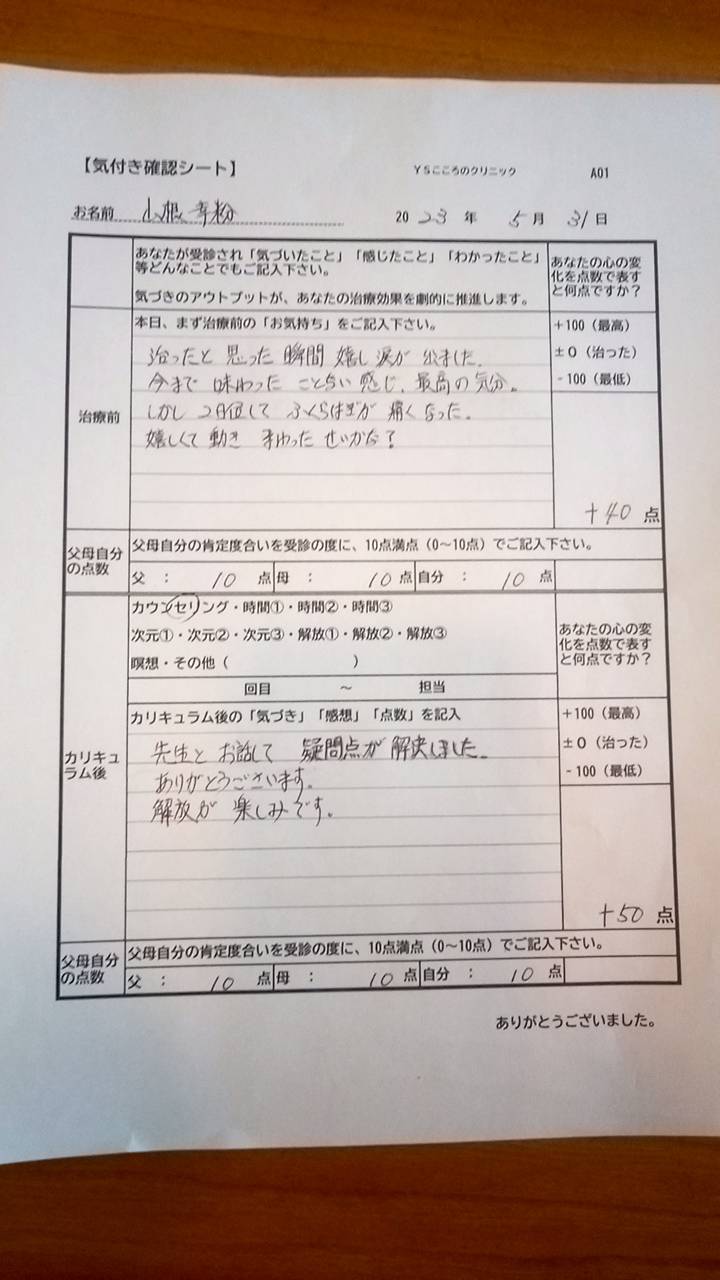 【気付き確認シート】 YSこころのクリニック A01
お名前 2023年 5月 31日
あなたが受診され「気づいたこと」「感じたこと」「わかったこと」
等どんなことでもご記入下さい。
気づきのアウトプットが、あなたの治療効果を劇的に推進します。
あなたの心の変
化を点数で表す
と何点ですか？
治療前
本日、まず治療前の「お気持ち」をご記入下さい。
治ったと思った瞬間嬉し涙が出ました。
今まで味わったことない感じ、最高の気分。
しかし2日位してふくらはぎが痛くなった。
嬉しくて動きまわったせいかな？
+100（最高）
±0（治った）
-100（最低）
+40点
父母自分
の点数
父母自分の肯定度合いを受診の度に、10点満点（0～10点）でご記入下さい。
父： 10点 母： 10点 自分： 10点
カリキュ
ラム後
カウンセリング・時間①・時間②・時間③
次元①・次元②・次元③・解放①・解放②・解放③
瞑想・その他（ ）
回目 ～ 担当
あなたの心の変
化を点数で表す
と何点ですか？
カリキュラム後の「気づき」「感想」「点数」を記入
先生とお話して疑問点が解決しました。
ありがとうございます。
解放が楽しみです。
+100（最高）
±0（治った）
-100（最低）
+50点
父母自分
の点数
父母自分の肯定度合いを受診の度に、10点満点（0～10点）でご記入下さい。
父： 10点 母： 10点 自分： 10点
ありがとうございました。